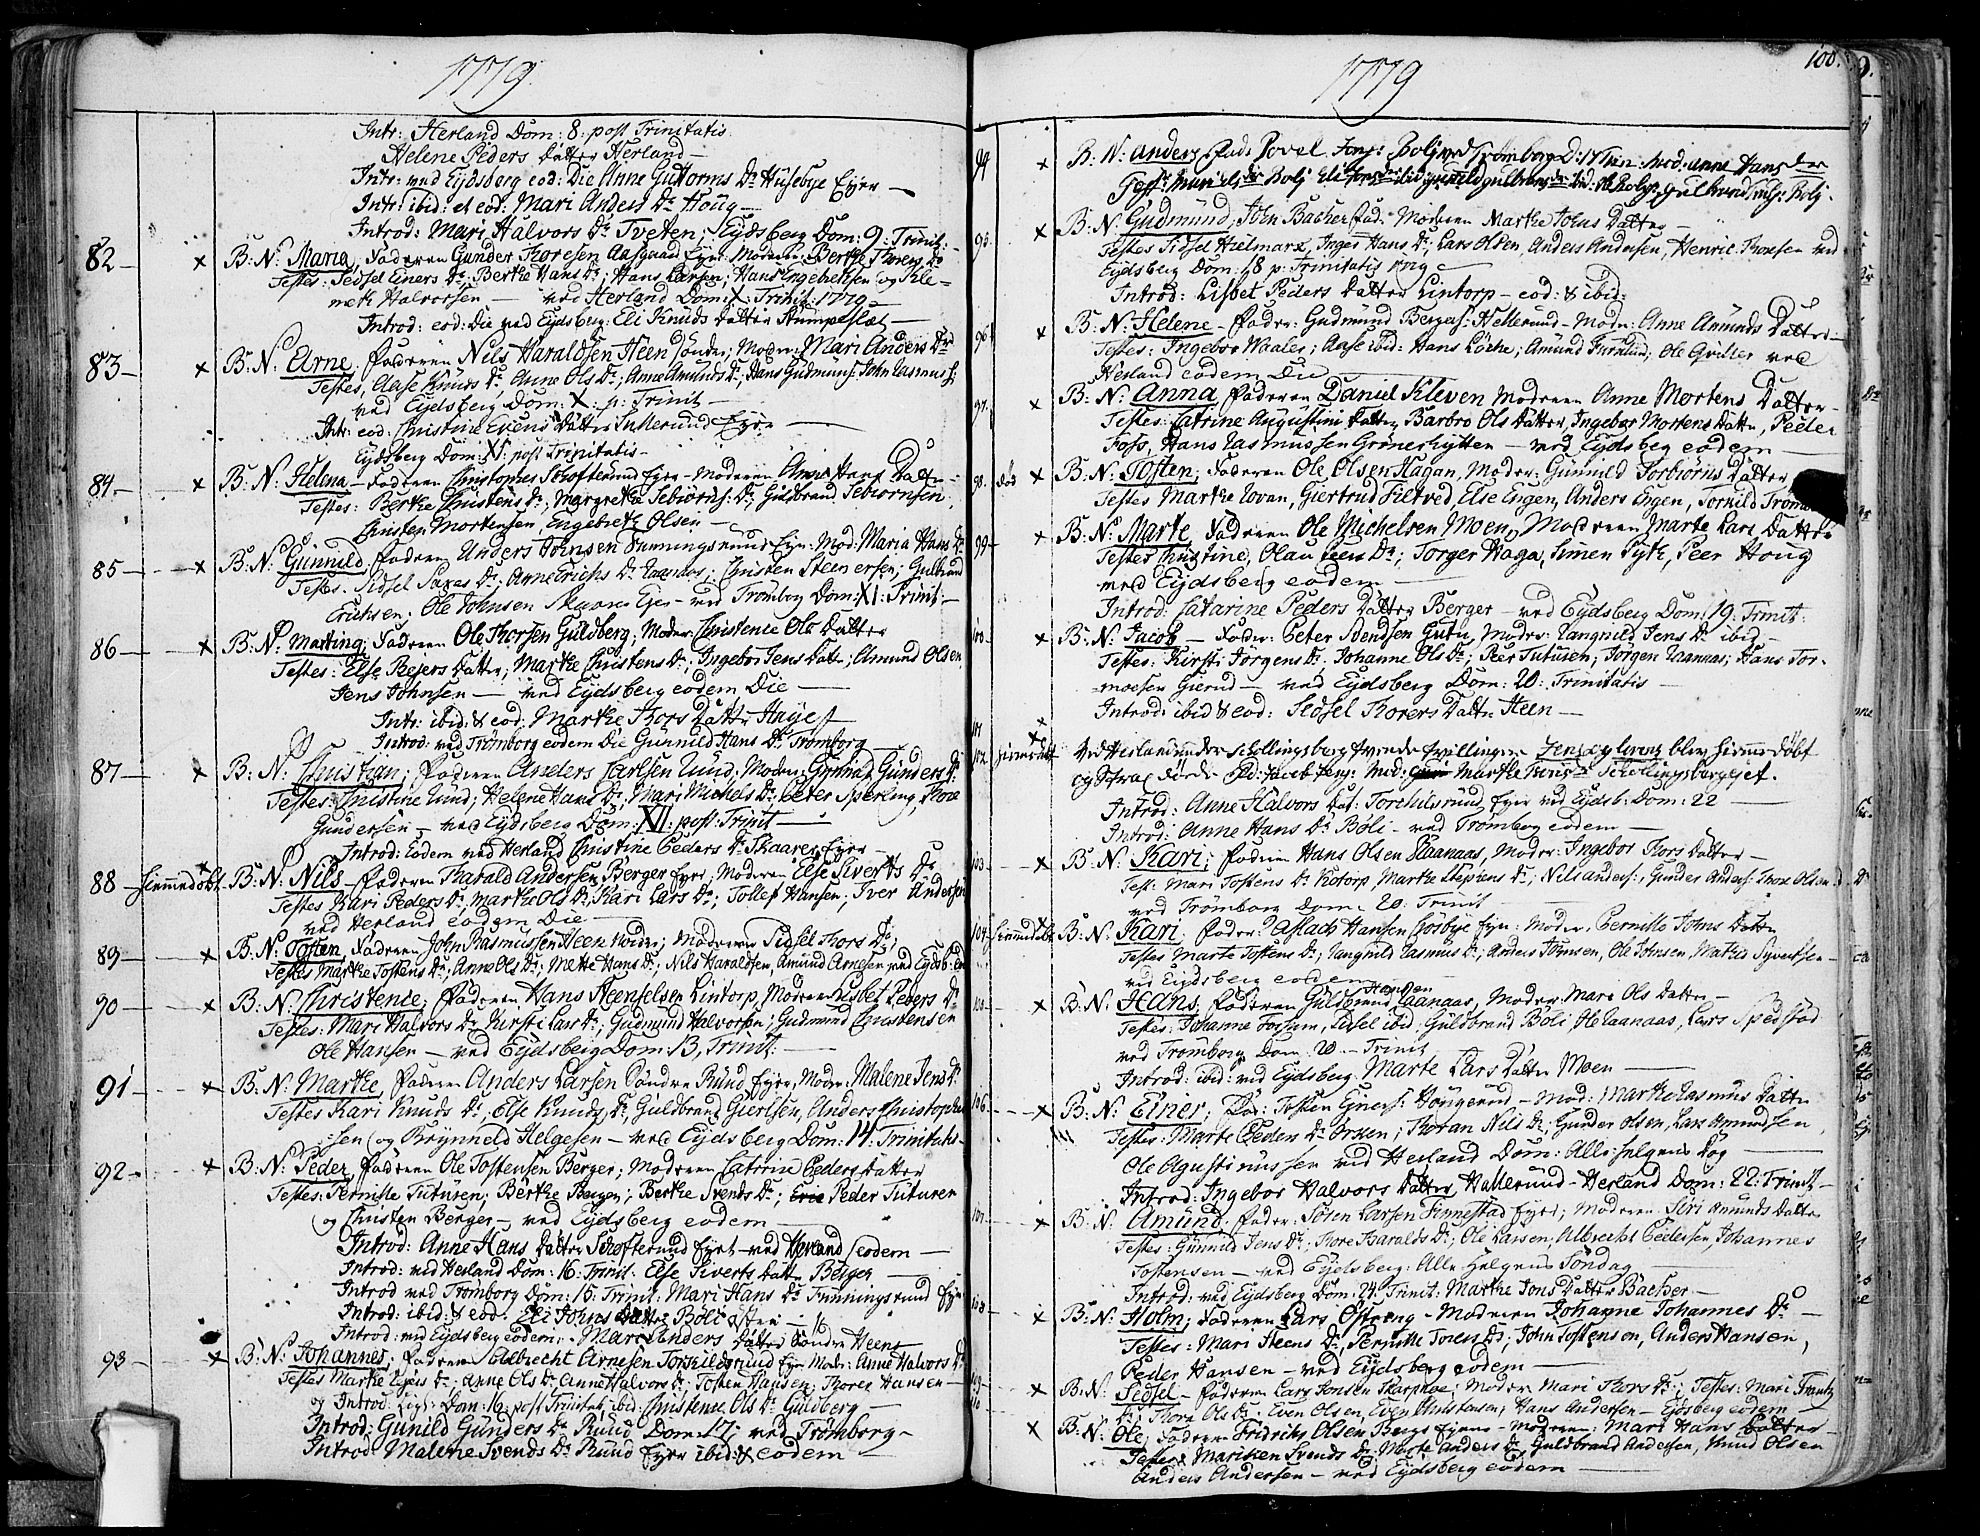 1779
Intr: Herland Dom: 8: post Trinitatis
Helene Peders Datter Herland
Intr: ved Eydsberg eod: Die Anne Guttorms Dr Husebye Eyer
Intr: ibid: et eod: Mari Anders Dr Houg
Introd: Mari Halvors Dr Tveten; Eydsberg Dom: 9: Trinit:
82 x B: N: Maria, Faderen Gunder Thoresen Aasgaard Eyn: Moderen Berthe Thores Dr
Testes: Sedsel Einers Dr; Berthe Hans Dr; Hans Larsen; Hans Ingebrethsen og Kle-
meth Halvorsen ved Herland Dom: X: Trinit: 1779
Introd: eod: Die ved Eydsberg: Eli Knuds Datter Stumpeslet
83 x B: N: Arne, Faderen Nils Haraldsen Heen Sondre; Moder: Mari Anders Dr
Testes, Aase Knuds Dr, Anne Ols Dr; Anne Amunds Dr; Hans Gudmuns: John Rasmuss:
ved Eydsberg Dom: X: p: Trinit
Intr: eod: Christine Evens Datter Eyer
Eydsberg Dom: XI: post Trinitatis
84 x B: N: Helena Faderen Christopher Skofterund Eyer Moderen Anne Hans Datter
Testes: Berthe Christens Dr; Margrethe Tebiorns: Dr; Gulbrand Tebiornsen,
Christen Mortensen, Engebreth Olsen
85 x B: N: Gunnild, Faderen Anders Johnsen Tunningsruud Eyn: Mod: Maria Hans Dr
Testes: Sidsel Dr; Anne Erichs Dr Raanaas; Christen Steenersen; Gulbrand
Erichsen; Ole Johnsen Skaaren Eyer ved Trømborg Dom: XI: Trinit:
86 x B: N: Marting; Faderen Ole Thorsen Guldberg; Moder: Christense Ols Datter
Testes: Else Peders Datter; Marthe Christens Dr; Ingebor Jens Datter; Amund Olsen
Jens Johnsen ved Eydsberg eodem Die
Intr: ibid: & eod: Marthe Thors Datter Haye
Introd: ved Trømborg eodem Die Gunnild Hans Dr Trømborg
87 x B: N: Christian; Faderen Anders Carlsen Lund; Moder: Gunnild Gunders Dr
Testes: Christine Lund; Helene Hans Dr; Mari Michels Dr; Peter Sperling, Thore
Gundersen ved Eydsberg Dom: XII: post: Trinit
Introd: Eodem ved Herland Christine Peders Dr Skaaren Eyer
88 hiemmedøbt x B: N: Nils Faderen Harald Andersen Berger Eyer; Moderen Else Siverts Dr
Testes Kari Peders Dr Marthe Ols Dr; Kari Lars Dr; Tollef Hansen; Iver Andersen
ved Herland eodem Die
89 x B: N: Tosten, Faderen John Rasmussen Heen Nordre; Moderen Sidsel Thors Dr;
Testes Marthe Tostens Dr; Anne Ols Dr; Mette Hans Dr; Nils Haraldsen, Amund Arnesen ved Eydsb:
90 x B: N: Christense; Faderen Hans Steenselsen Lintorp, Moderen Lisbet Peders Dr
Testes: Mari Halvors Dr Kirsti Lars Dr; Gudmund Halvorsen; Gudmund Christensen
Ole Hansen ved Eydsberg Dom: 13, Trinit:
91 x B: N: Marthe, Faderen Anders Larsen Søndre Ruud Eyer, Moder: Malene Jens Dr
Testes Kari Knuds Dr; Else Knuds Dr; Guldbrand Gierlsen, Anders Christopher
sen og Brynneld Helgesen ved Eydsberg Dom: 14: Trinitatis
92 x B: N: Peder, Faderen Ole Tostensen Berger; Moderen Catrine Peders Datter
Testes: Pernille Tuturen; Berthe Bergen; Berthe Svends Dr; Peder Tuturen
og Christen Berger ved Eydsberg eodem
Introd: Anne Hans Datter Skofterud Eyet ved Herland eodem
Introd: ved Herland Dom: 16: Trinit: Else Siverts Datter Berger
Introd ved Trømborg Dom: 15: Trinit: Mari Hans Dr Tunningsruud Eyn
Introd: ibid: & eod: Eli Johns Datter Bøli østen
Introd: ved Eydsberg eodem, Mari Anders Datter Søndre Heen
93 x B: N: Johannes; Faderen Albrecht Arnesen Torskildsruud Eyn Moder: Anne Halvors Dr
Testes Marthe Dr; Anne Ols Dr Anne Halvors Dr; Tosten Hansen; Thoren Hansen
og Introd: Dom: 16: post Trinitat: ibid: Christense Ols Dr Guldberg
Introd: Gunild Gunders Dr Ruud Dom: 17; ved Trømborg
Introd: Malene Svends Dr Ruud Eyer ibid: & eodem
1779 100.
94 x B: N: Anders Fad: Povel Jens: Bolj ved Trømborg D: 17 Trin: Mod: Anne Hans
95 x B: N: Gudmund, John Bacher Fad: Moderen Marthe Johns Datter
Testes Sidsel Hielmark, Inger Hans Dr; Lars Olsen, Anders Andersen, Henric Thoresen ved
Eydsberg Dom: 18 p: Trinitatis 1779
Introd: Lisbet Peders Datter Lintorp eod: & ibid:
96 x B: N: Helene Fader: Gudmund Bergers: Hellerund Moder: Anne Amunds Datter
Testes: Ingebor Waaler; Aase ibid: Hans Løche; Amund Furulund; Ole Gviller ved
Herland eodem Die
97. x B: N: Anna Faderen Daniel Kleven Moderen Anne Mortens Datter
Testes: Catrine Augustini Datter Barbro Ols Datter, Ingebor Mortens Datter, Peeter
Foss, Hans Rasmussen Grønerhytten ved Eydsberg eodem
98. død x B: N: Tosten; Faderen Ole Olsen Hagan, Moder: Gunnild Torbiørns Datter
Testes Marthe Lovan, Giertrud Filtved, Else Engen, Anders Engen, Torkild
99 x B: N: Marte, Faderen Ole Michelsen Moen, Moderen Marte Lars Datter
Testes Christine, Olau Dr; Torger Haga, Simen Tyth, Peer Houg
ved Eydsberg eodem
Introd: Catarine Peders Datter Berger ved Eydsberg Dom: 19: Trinit:
100 x B: N: Jacob Fader: Peter Svendsen Gutu, Moder: Rangnild Jens Dr ibid
Testes: Kirsti Jørgens Dr. Johanne Ols Dr; Peer Tuturen; Jørgen Raanaas; Hans Tor-
moesen Gierud ved Eydsberg Dom: 20: Trinitatis
Introd: ibid & eod: Sedsel Thorers Datter Heen
101 x
102 hiemedøbt x Ved Herland under Schollingsberg tvende Tvillinger Jens og Lorens blev hiemmedøbt
og strax døde Fad: Jacob Jens: Mod: Marthe Schollingsberg
Introd: Anne Halvors Dat: Torchilsrund Eyer ved Eydsb: Dom: 22
Introd: Anne Hans Dr Bøli ved Trømborg eodem
103 x B: N: Kari; Faderen Hans Olsen Raanaas, Moder: Ingebor Thors Datter
Test: Mari Tostens Dr Kotorp Marthe Stephens Dr; Nils Anders:, Gunder Anders: Thore Olsen
ved Trømborg Dom: 20: Trinit
104 hiemmedøbt x B: N: Kari Fader: Aslach Hansen Gosbye Eyn: Moder: Pernille Johns Datter
Testes Marte Tostens Dr; Rangnild Rasmus Dr; Anders Johnsen, Ole Johnsen, Mathis Syvertsen
ved Eydsberg eodem
105 x B: N: Hans, Faderen Guldbrand Hansen Raanaas, Moder: Mari Ols Datter
Testes: Johanne Forsum, Sidsel ibid, Guldbrand Bøli, Raanaas, Lars Spedstad
ved Trømborg Dom: 20 Trinit
Introd: ibid: ved Eydsberg. Marte Lars Datter Moen
106 x B: N: Einer; Fad: Tosten Einers: Houngerud Mod: Marthe Rasmus Datter
Testes: Marte Peders Dr; Thoran Nils Dr; Gunder Olsen, Lars Amundsen,
Ole Agustinussen ved Herland Dom: Alle helgens Dag
Introd: Ingebor Halvors Datter Hallerund Herland Dom: 22: Trinit
107 x B: N: Amund, Fader: Søren Larsen Finnestad Eyer; Moderen Siri Amunds Datter
Testes: Gunnild Jens Dr; Thore Haralds Dr; Ole Larsen, Albrecht Pedersen, Johannes
Tostensen ved Eydsberg: Alle Helgens Søndag
Introd: ved Eydsberg Dom: 24: Trinit: Marthe Jons Datter Bacher
108 x B: N: Holm; Faderen Lars Østreng Moderen Johanne Johannes Dr
Testes: Mari Steens Dr; Pernille Toresen Dr; John Tostensen, Anders Hansen,
Peder Hansen ved Eydsberg eodem
109 x B: N: Sedsel Faderen Lars Jonsen Skarphoe; Moder Mari Thors Dr; Testes: Mari Frantz
Dr; Thora Ols Dr Even Olsen, Even Christensen, Hans Andersen Eydsberg eodem
110 x B: N: Ole; Faderen Fridrik Olsen Bergs Eyene Moderen: Mari Hans Datter
Testes Marithen Svends Dr Marte Anders Dr Guldbrand Andersen, Knud Olsen
Anders Andersen ved Eydsberg eodem